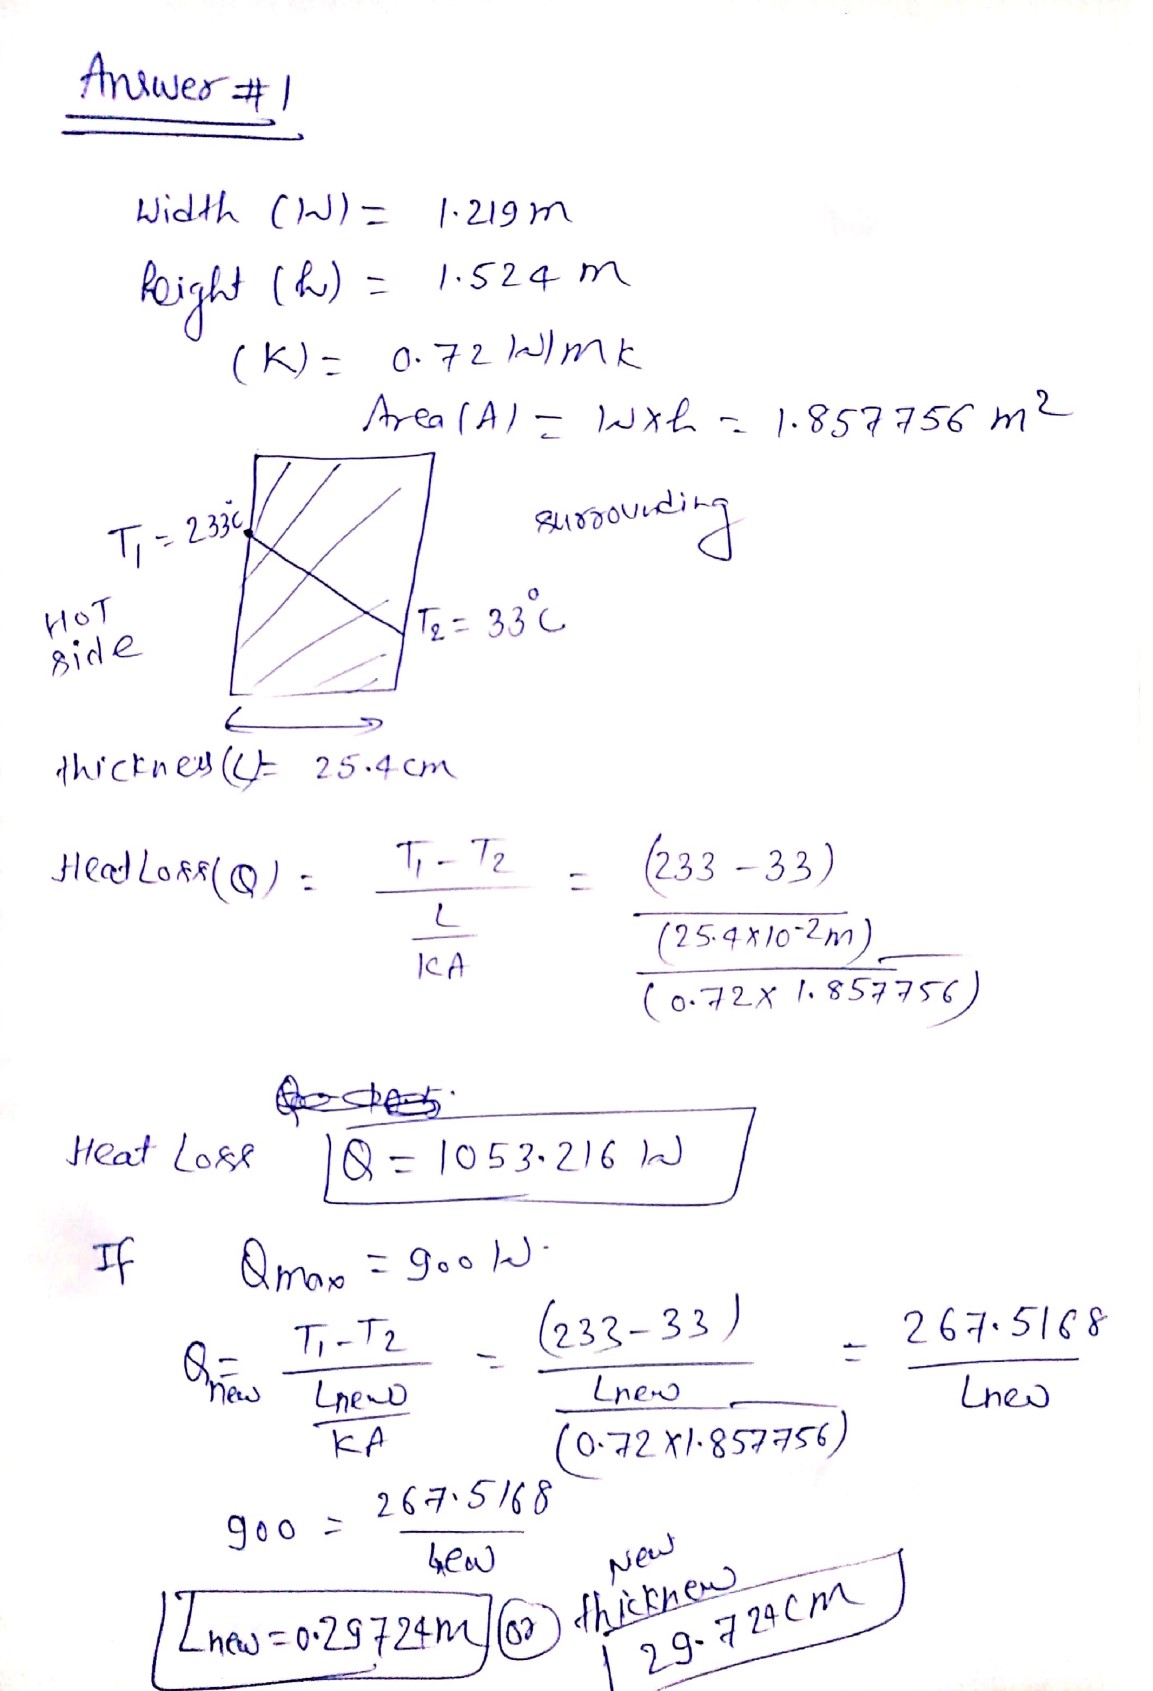 Answer # 1
Width (W) = 1.219 m
height (h) = 1.524 m
(K) = 0.72 W/mk
Area (A) = W x h = 1.857756 m²
T₁ = 233°C
surrounding
HOT
side
T₂ = 33°C
thickness (L) = 25.4 cm
Heat Loss (Q) = T₁ - T₂ / L / KA = (233 - 33) / (25.4 x 10⁻² m) / (0.72 x 1.857756)
Heat Loss Q = 1053.216 W
If Qmax = 900 W.
Qnew = T₁ - T₂ / Lnew / KA = (233 - 33) / Lnew / (0.72 x 1.857756) = 267.5168 / Lnew
900 = 267.5168 / Lnew
Lnew = 0.29724 m or New thickness 29.724 cm